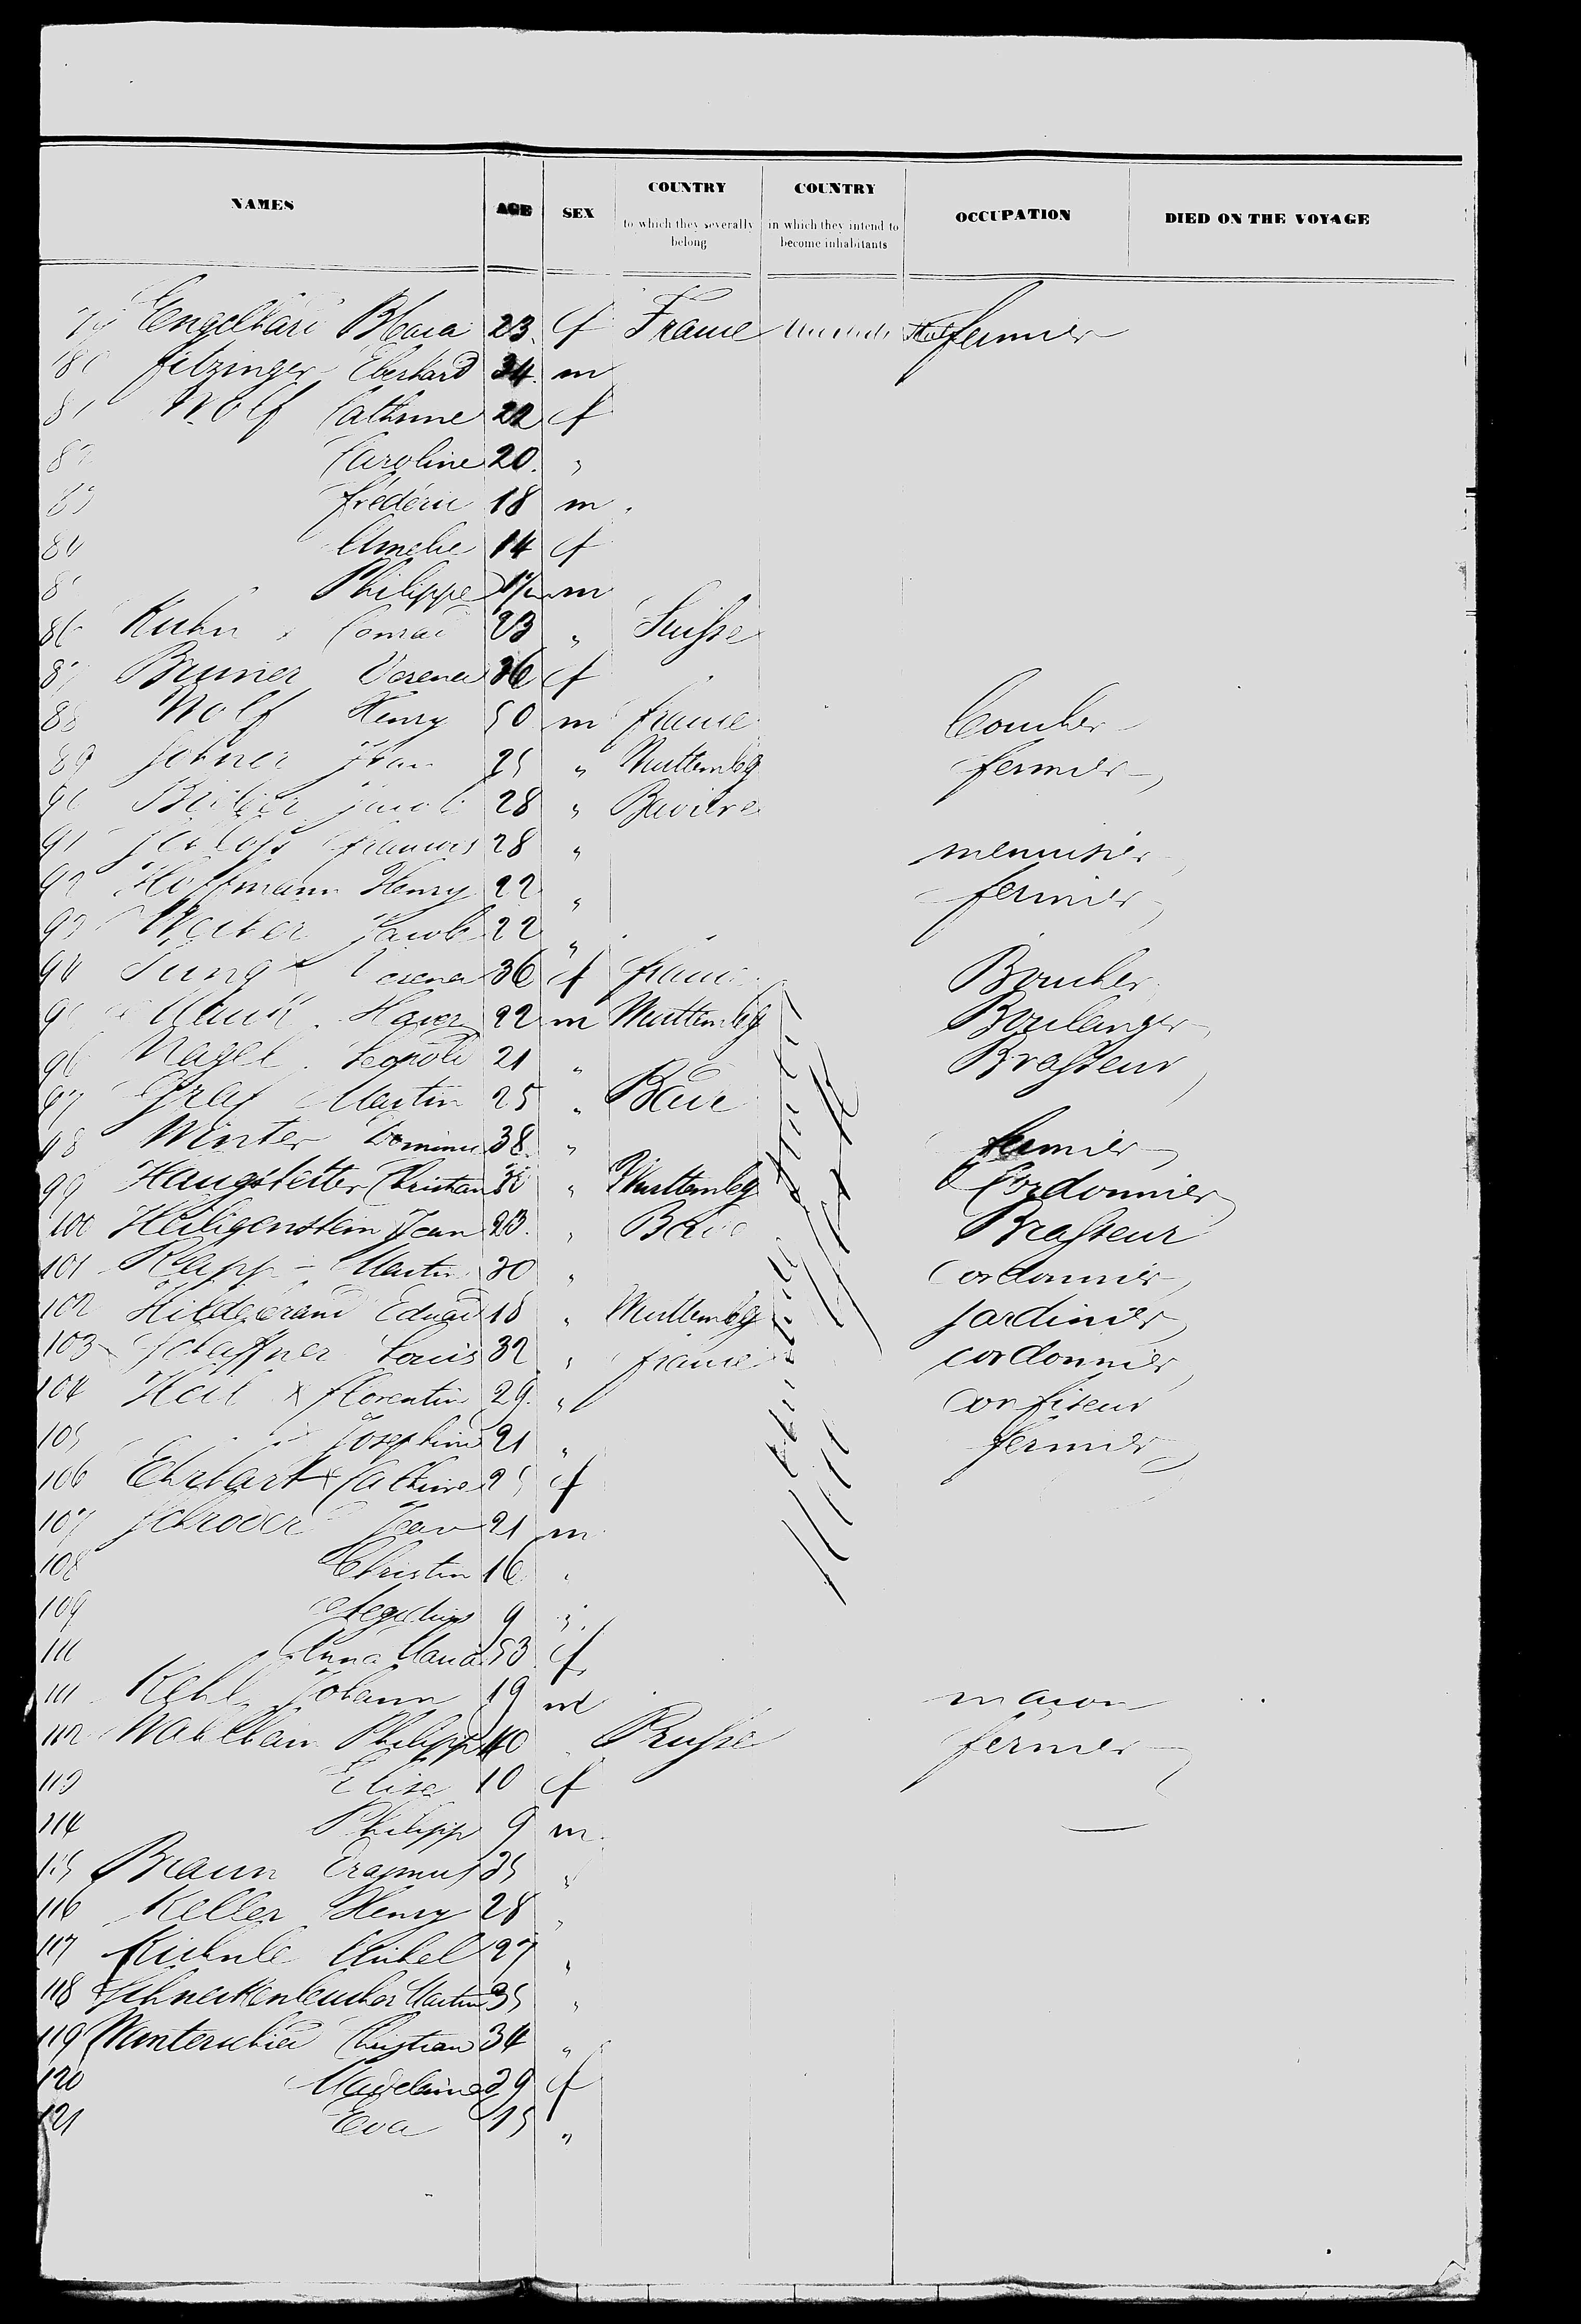 NAMES AGE SEX COUNTRY to which they severally belong COUNTRY in which they intend to become inhabitants OCCUPATION DIED ON THE VOYAGE
79 Engelhard Maria 23 f France fermier
80 Fitzinger Eberhard 34 m
81 Wolf Cathrine 22 f
82 Caroline 20 "
83 Frédéric 18 m
84 Amelie 14 f
Philippe m
86 Kuhn Conrad 23 " Suisse
87 Brunner Verena 36 f
88 Wolf Henry 50 m france Boucher
89 25 " Wurttembg fermier
90 Jacob 28 " Baviere
91 francois 28 " menuisier
92 Hoffmann Henry 22 " fermier
93 Weiber Jacob 22 "
94 Jung Verena 36 f france Boucher
95 Xaver 22 m Wurttembg Boulanger
96 Nagel Leopold 21 " Brasseur
97 Graf Martin 25 " Bade
98 Winter 38 " fermier
99 Haugstetter Christian " Wurttemberg Cordonnier
100 Heiligenstein Jean 23 " Bade Brasseur
101 Rapp Martin 30 " cordonnier
102 Hildebrand Eduard 18 " Wurttembg Jardinier
103 Schaffner Louis 32 " france cordonnier
104 Heil x florentin 29 " confiseur
105 Josephine 21 " fermier
106 Ehrhart x Cathrine 25 f
107 Schroder Jean 21 m
108 Christin 16 "
109 Aegidius 9 "
Anna Maria 53 f
111 Kehl Johann 19 m macon
112 Philipp 40 Prusse fermier
113 Elisa 10 f
114 Philipp 9 m
115 Braun Erasmus 35 "
116 Keller Henry 28 "
117 Kiehnle Michel 27 "
118 Schneckenburcher Martin 35 "
119 Christian 34 "
120 Madelaine 39 f
121 Eva 15 "